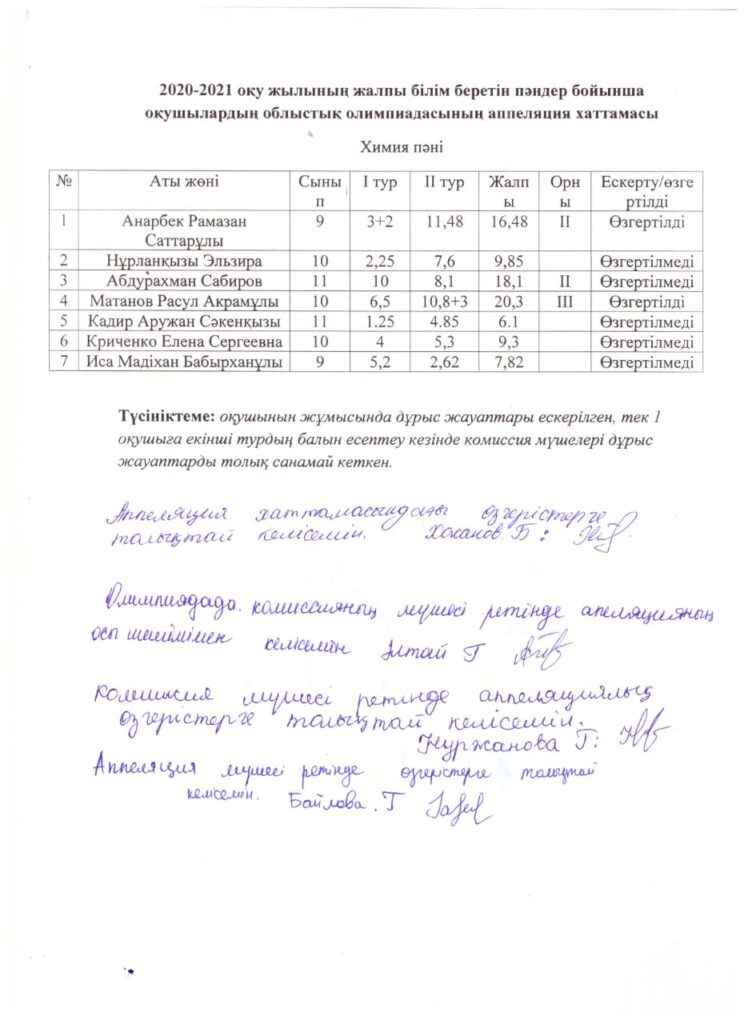 2020-2021 оқу жылының жалпы білім беретін пәндер бойынша
оқушылардың облыстық олимпиадасының аппеляция хаттамасы
Химия пәні
№ Аты жөні Сыны п I тур II тур Жалп ы Орн ы Ескерту/өзге ртілді
1 Анарбек Рамазан Саттарұлы 9 3+2 11,48 16,48 II Өзгертілді
2 Нұрланқызы Эльзира 10 2,25 7,6 9,85 Өзгертілмеді
3 Абдурахман Сабиров 11 10 8,1 18,1 II Өзгертілмеді
4 Матанов Расул Акрамұлы 10 6,5 10,8+3 20,3 III Өзгертілді
5 Кадир Аружан Сәкенқызы 11 1.25 4.85 6.1 Өзгертілмеді
6 Криченко Елена Сергеевна 10 4 5,3 9,3 Өзгертілмеді
7 Иса Мадіхан Бабырханұлы 9 5,2 2,62 7,82 Өзгертілмеді
Түсініктеме: оқушынын жұмысында дұрыс жауаптары ескерілген, тек 1
оқушыға екінші турдың балын есептеу кезінде комиссия мүшелері дұрыс
жауаптарды толық санамай кеткен.
Аппеляция хаттамасындағы өзгерістерге
толықтай келісемін. Хоханов Б:
Олимпиадада. комиссияның мүшесі ретінде апеляцияның
осы шешімімен келісемін Элтай Г
Комиссия мүшесі ретінде аппеляциялық
өзгерістерге толықтай келісемін.
Нуржанова Г:
Аппеляция мүшесі ретінде өзгерістерге толықтай
келісемін. Байлова. Г